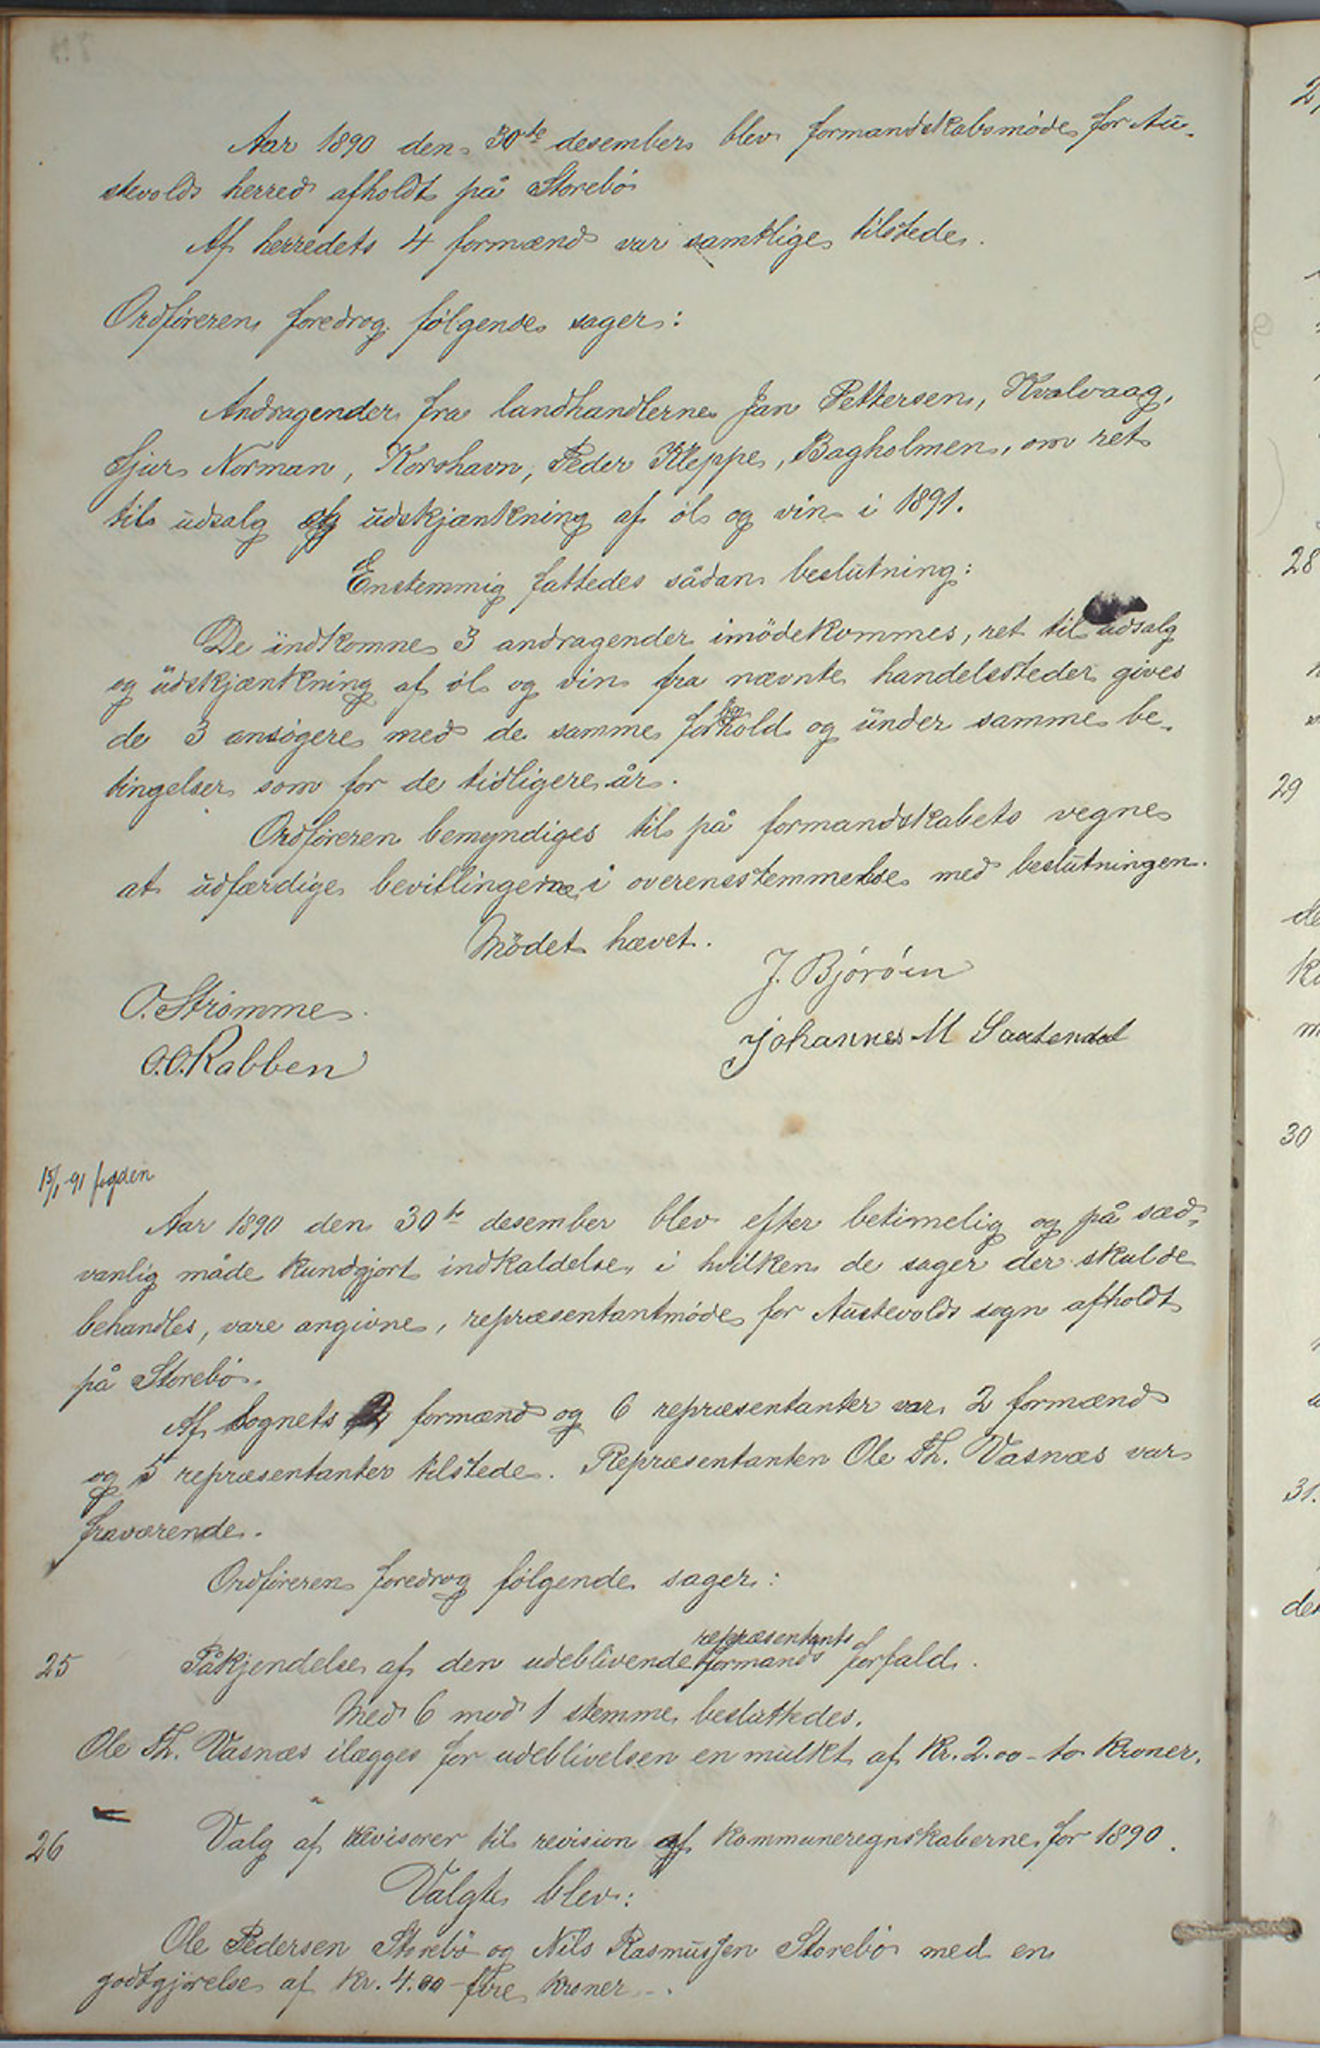 Aar 1890 den 30te desember blev formandskabsmøde for Au-
stevolds herred afholdt på Storebø
Af herredets 4 formænd var samtlige tilstede.
Ordføreren foredrog følgende sager:
Andragender fra landhandlerne Jan Pettersen, Kvalvaag,
Sjur Norman, Korshavn, Peder Kleppe, Bagholmen, om ret
til udsalg og udskjænkning af øl og vin i 1891.
Enstemmig fattedes sådan beslutning:
De indkomne 3 andragender imødekommes, ret til udsalg
og udskjænkning af øl og vin fra nævnte handelssteder gives
de 3 ansøgere med de samme forhold og under samme be-
tingelser som for de tidligere år.
Ordføreren bemyndiges til på formandskabets vegne
at udfærdige bevillingerne i overensstemmelse med beslutningen.
Mödet hævet.
J. Bjørøen
O. Strømme
Johannes M
O.O. Rabben
15/1-91 fogden
Aar 1890 den 30te desember blev efter betimelig og på sæd-
vanlig måde kundgjort indkaldelse, i hvilken de sager der skulde
behandles, vare angivne, repræsentantmøde for Austevolds sogn afholdt
på Storebø.
Af sognets 2 formænd og 6 repræsentanter var 2 formænd
og 5 repræsentanter tilstede. Repræsentanten Ole Th. Vasnæs var
fraværende.
Ordføreren foredrog følgende sager:
repræsentants
25 Påkjendelse af den udeblivende formands forfald.
Med 6 mod 1 stemme besluttedes.
Ole Th. Vasnæs ilægges for udeblivelsen en mulkt af kr. 2.00 - to kroner.
26 Valg af revisorer til revision af kommuneregnskaberne for 1890.
Valgte blev:
Ole Pedersen Storebø og Nils Rasmussen Storebø med en
godtgjørelse af kr. 4.00 - fire kroner -.
28
29
de
30
31.